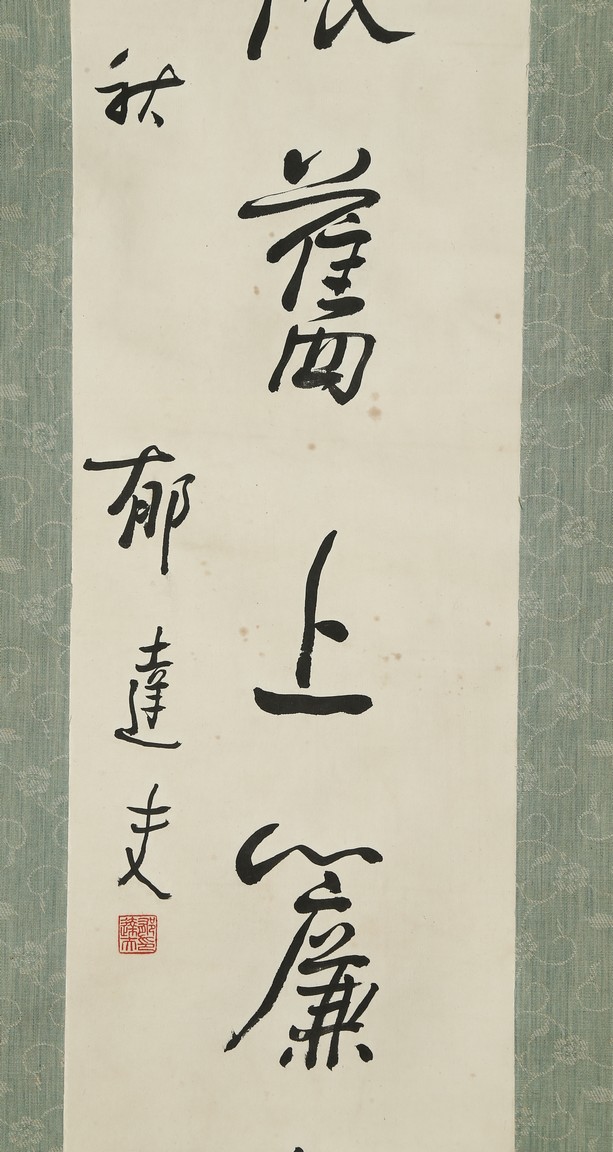 舊上簾
秋 郁達夫